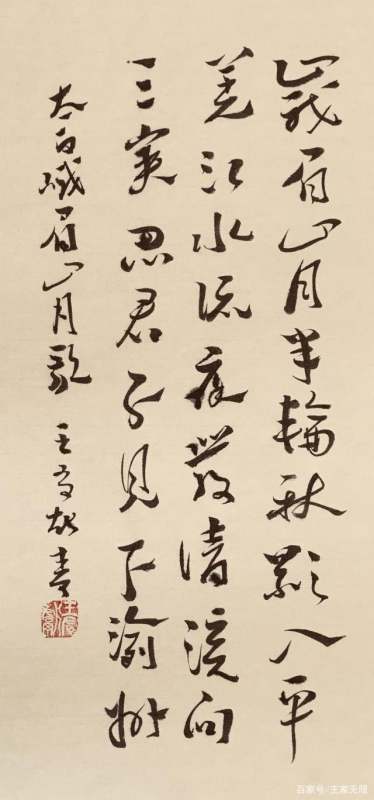 峩眉山月半輪秋影入平
羌江水流夜發清溪向
三峽思君不見下渝州
太白峨眉山月歌 王書
百家号/